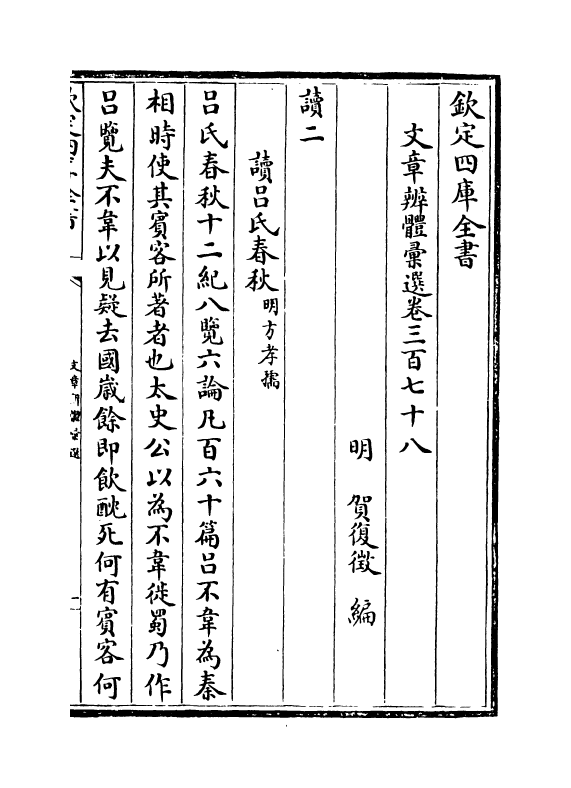 欽定四庫全書
文章辨體彙選卷三百七十八
明 賀復徵 編
讀二
讀呂氏春秋 明方孝孺
呂氏春秋十二紀八覽六論凡百六十篇呂不韋為秦
相時使其賓客所著者也太史公以為不韋徙蜀乃作
呂覽夫不韋以見疑去國歲餘即飲酖死何有賓客何